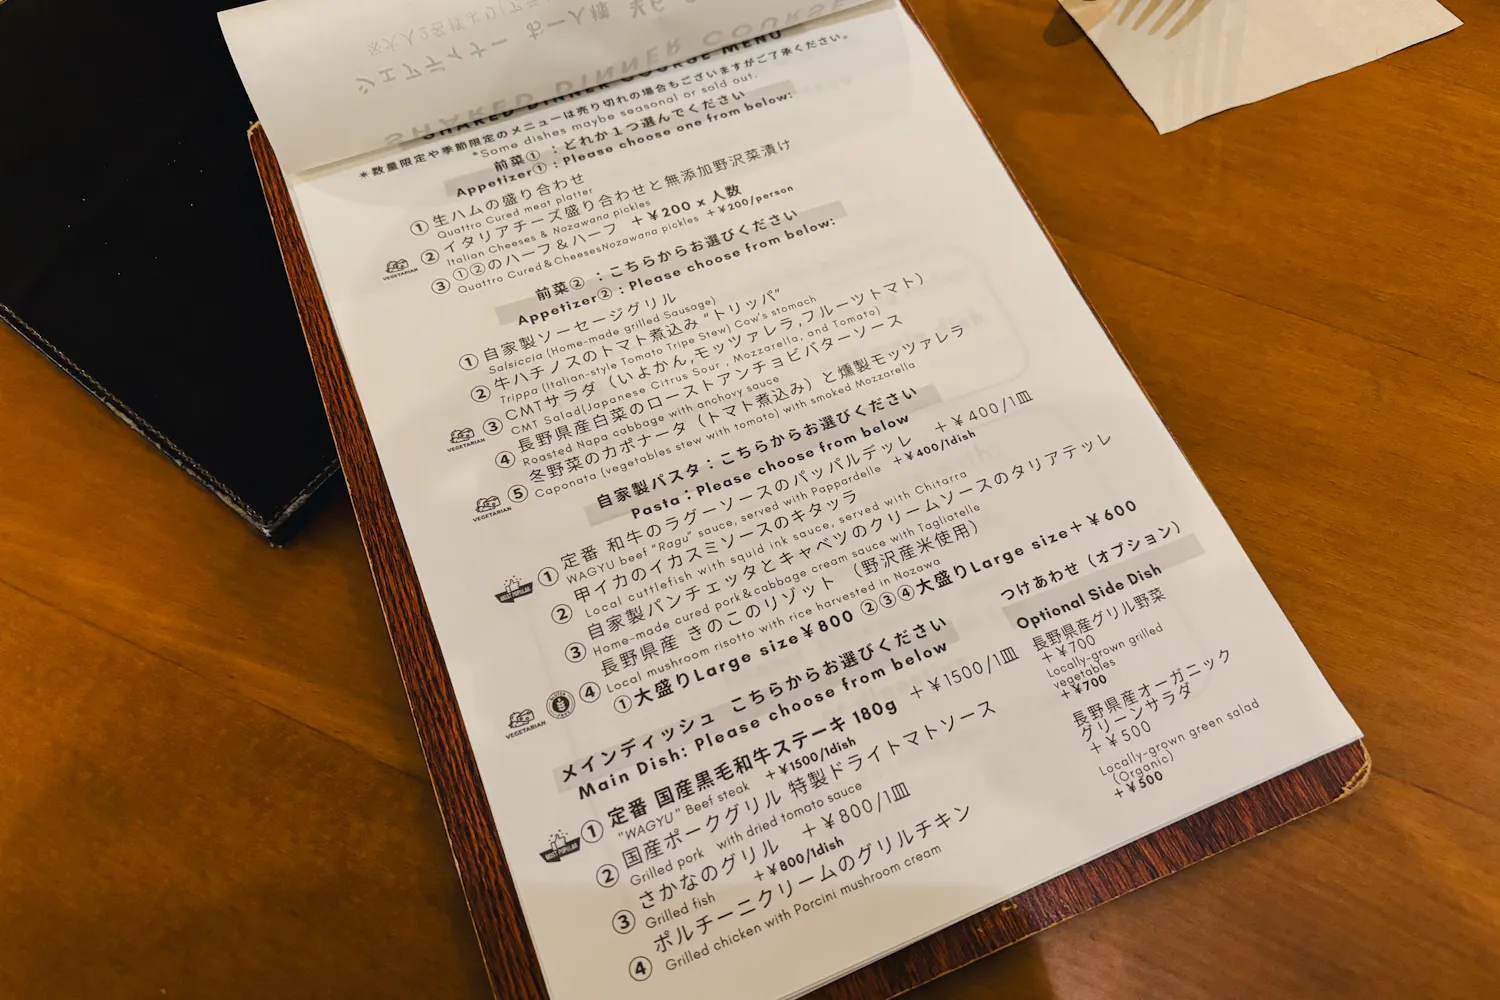 シェアディナー お一人様
SHARED DINNER COURSE
SHARED DINNER COURSE MENU
＊数量限定や季節限定のメニューは売り切れの場合もございますがご了承ください。
*Some dishes maybe seasonal or sold out.
前菜① ：どれか１つ選んでください
Appetizer①：Please choose one from below:
① 生ハムの盛り合わせ
Quattro Cured meat platter
VEGETARIAN ② イタリアチーズ盛り合わせと無添加野沢菜漬け
Italian Cheeses & Nozawana pickles
③ ①②のハーフ＆ハーフ ＋￥200 x 人数
Quattro Cured＆CheesesNozawana pickles ＋￥200/person
前菜② ：こちらからお選びください
Appetizer②：Please choose from below:
① 自家製ソーセージグリル
Salsiccia (Home-made grilled Sausage)
② 牛ハチノスのトマト煮込み “トリッパ”
Trippa (Italian-style Tomato Tripe Stew) Cow’s stomach
VEGETARIAN ③ CMTサラダ（いよかん,モッツァレラ,フルーツトマト）
CMT Salad(Japanese Citrus Sour , Mozzarella, and Tomato)
④ 長野県産白菜のローストアンチョビバターソース
Roasted Napa cabbage with anchovy sauce
VEGETARIAN ⑤ 冬野菜のカポナータ（トマト煮込み）と燻製モッツァレラ
Caponata (vegetables stew with tomato) with smoked Mozzarella
自家製パスタ：こちらからお選びください
Pasta：Please choose from below
MOST POPULAR ① 定番 和牛のラグーソースのパッパルデッレ ＋￥400/1皿
WAGYU beef “Ragu” sauce, served with Pappardelle ＋￥400/1dish
② 甲イカのイカスミソースのキタッラ
Local cuttlefish with squid ink sauce, served with Chitarra
③ 自家製パンチェッタとキャベツのクリームソースのタリアテッレ
Home-made cured pork＆cabbage cream sauce with Tagliatelle
VEGETARIAN ④ 長野県産 きのこのリゾット （野沢産米使用）
Local mushroom risotto with rice harvested in Nozawa
①大盛りLarge size￥800 ②③④大盛りLarge size＋￥600
メインディッシュ こちらからお選びください
Main Dish: Please choose from below
MOST POPULAR ① 定番 国産黒毛和牛ステーキ 180g ＋￥1500/1皿
“WAGYU” Beef steak ＋￥1500/1dish
② 国産ポークグリル 特製ドライトマトソース
Grilled pork with dried tomato sauce
③ さかなのグリル ＋￥800/1皿
Grilled fish ＋￥800/1dish
④ ポルチーニクリームのグリルチキン
Grilled chicken with Porcini mushroom cream
つけあわせ（オプション）
Optional Side Dish
長野県産グリル野菜
＋￥700
Locally-grown grilled
vegetables
＋￥700
長野県産オーガニック
グリーンサラダ
＋￥500
Locally-grown green salad
(Organic)
＋￥500